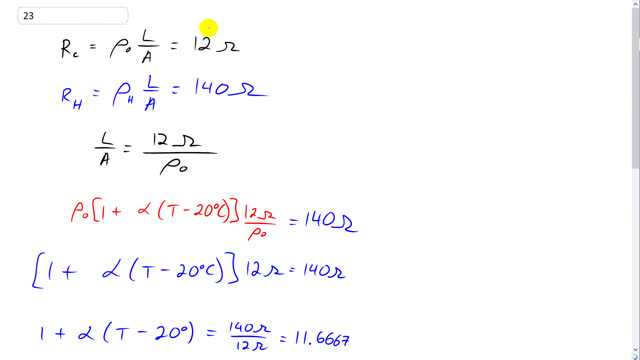 23
R_c = ρ₀ L/A = 12 Ω
R_H = ρ_H L/A = 140 Ω
L/A = 12 Ω/ρ₀
ρ₀[1 + α(T − 20°C)] 12Ω/ρ₀ = 140 Ω
[1 + α(T − 20°C)] 12 Ω = 140 Ω
1 + α(T − 20°) = 140Ω/12Ω = 11.6667